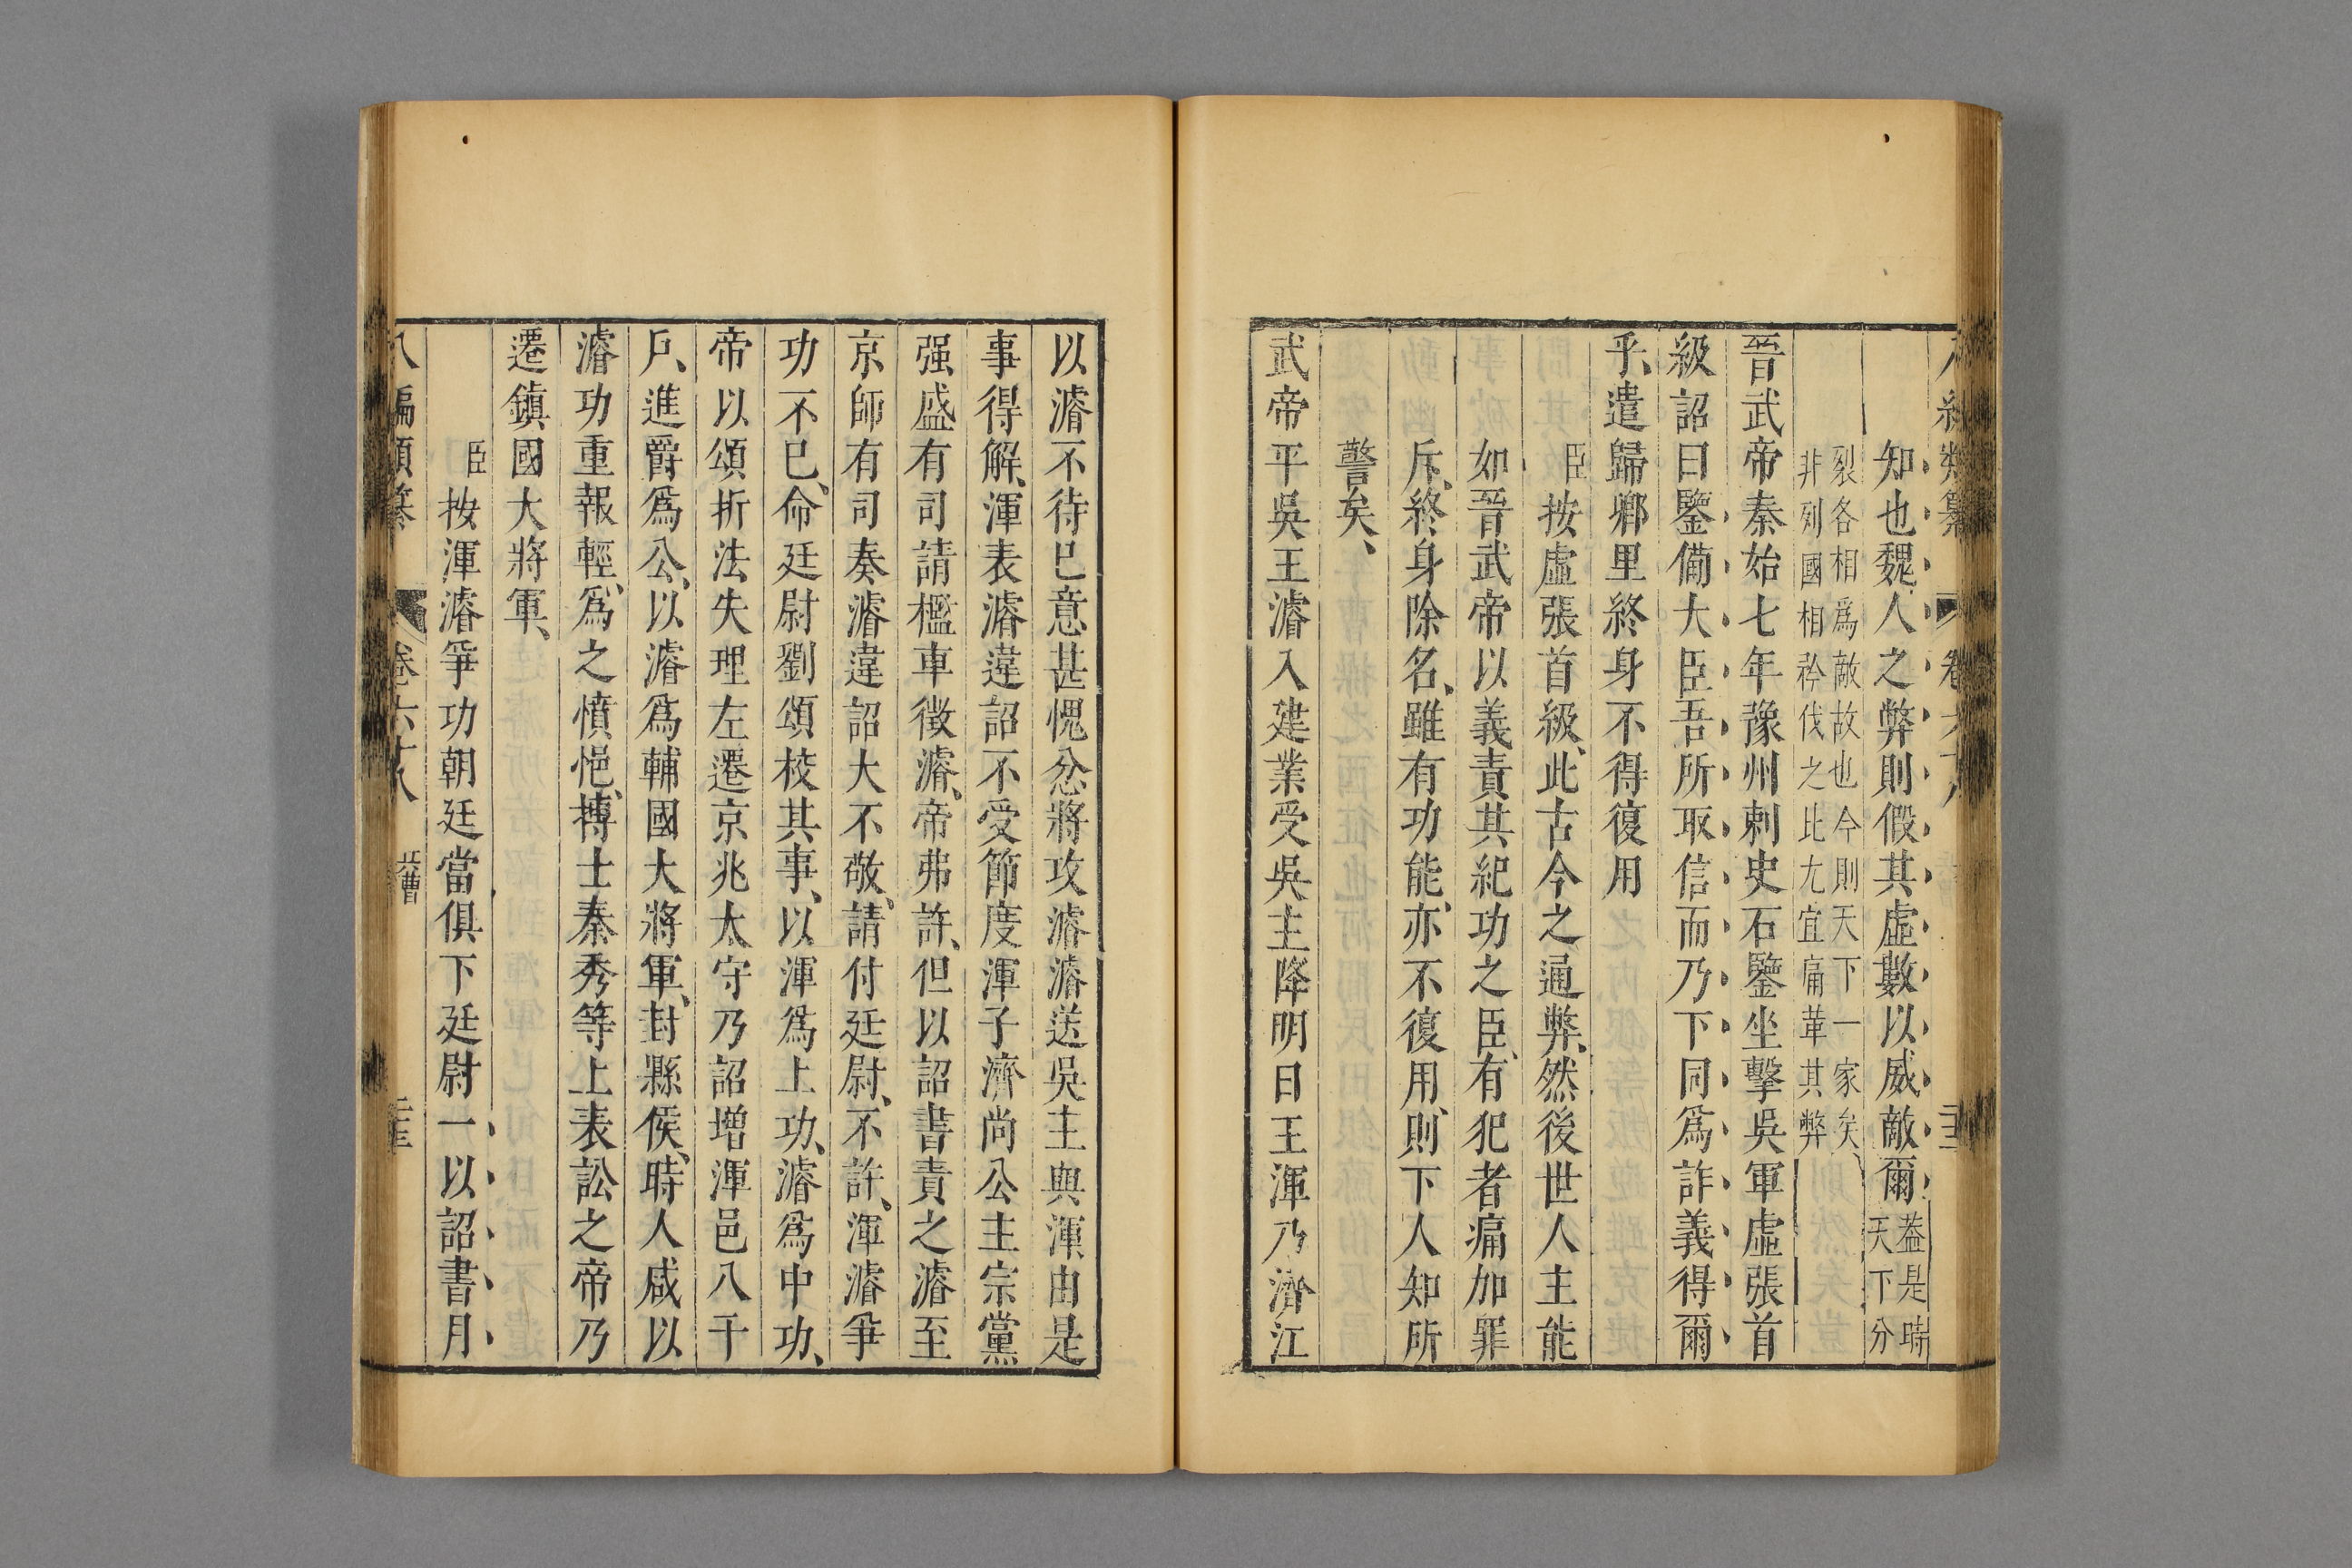 知也魏人之弊則假其虛數以威敵爾蓋是時天下分
裂各相爲敵故也今則天下一家矣
非列國相矜伐之比尤宜痛革其弊
晉武帝泰始七年豫州刺史石鑒坐擊吳軍虛張首
級詔曰鑒備大臣吾所取信而乃下同爲詐義得爾
乎遣歸鄉里終身不得復用
臣按虛張首級此古今之通弊然後世人主能
如晉武帝以義責其紀功之臣有犯者痛加罪
斥終身除名雖有功能亦不復用則下人知所
警矣
武帝平吳王濬入建業受吳主降明日王渾乃濟江
以濬不待已意甚愧忿將攻濬濬送吳主與渾由是
事得解渾表濬違詔不受節度渾子濟尚公主宗黨
强盛有司請檻車徵濬帝弗許但以詔書責之濬至
京師有司奏濬違詔大不敬請付廷尉不許渾濬爭
功不已命廷尉劉頌校其事以渾爲上功濬爲中功
帝以頌折法失理左遷京兆太守乃詔增渾邑八千
戶進爵爲公以濬爲輔國大將軍封縣侯時人咸以
濬功重報輕爲之憤悒博士秦秀等上表訟之帝乃
遷鎮國大將軍
臣按渾濬爭功朝廷當俱下廷尉一以詔書月
八編類纂 卷六十八